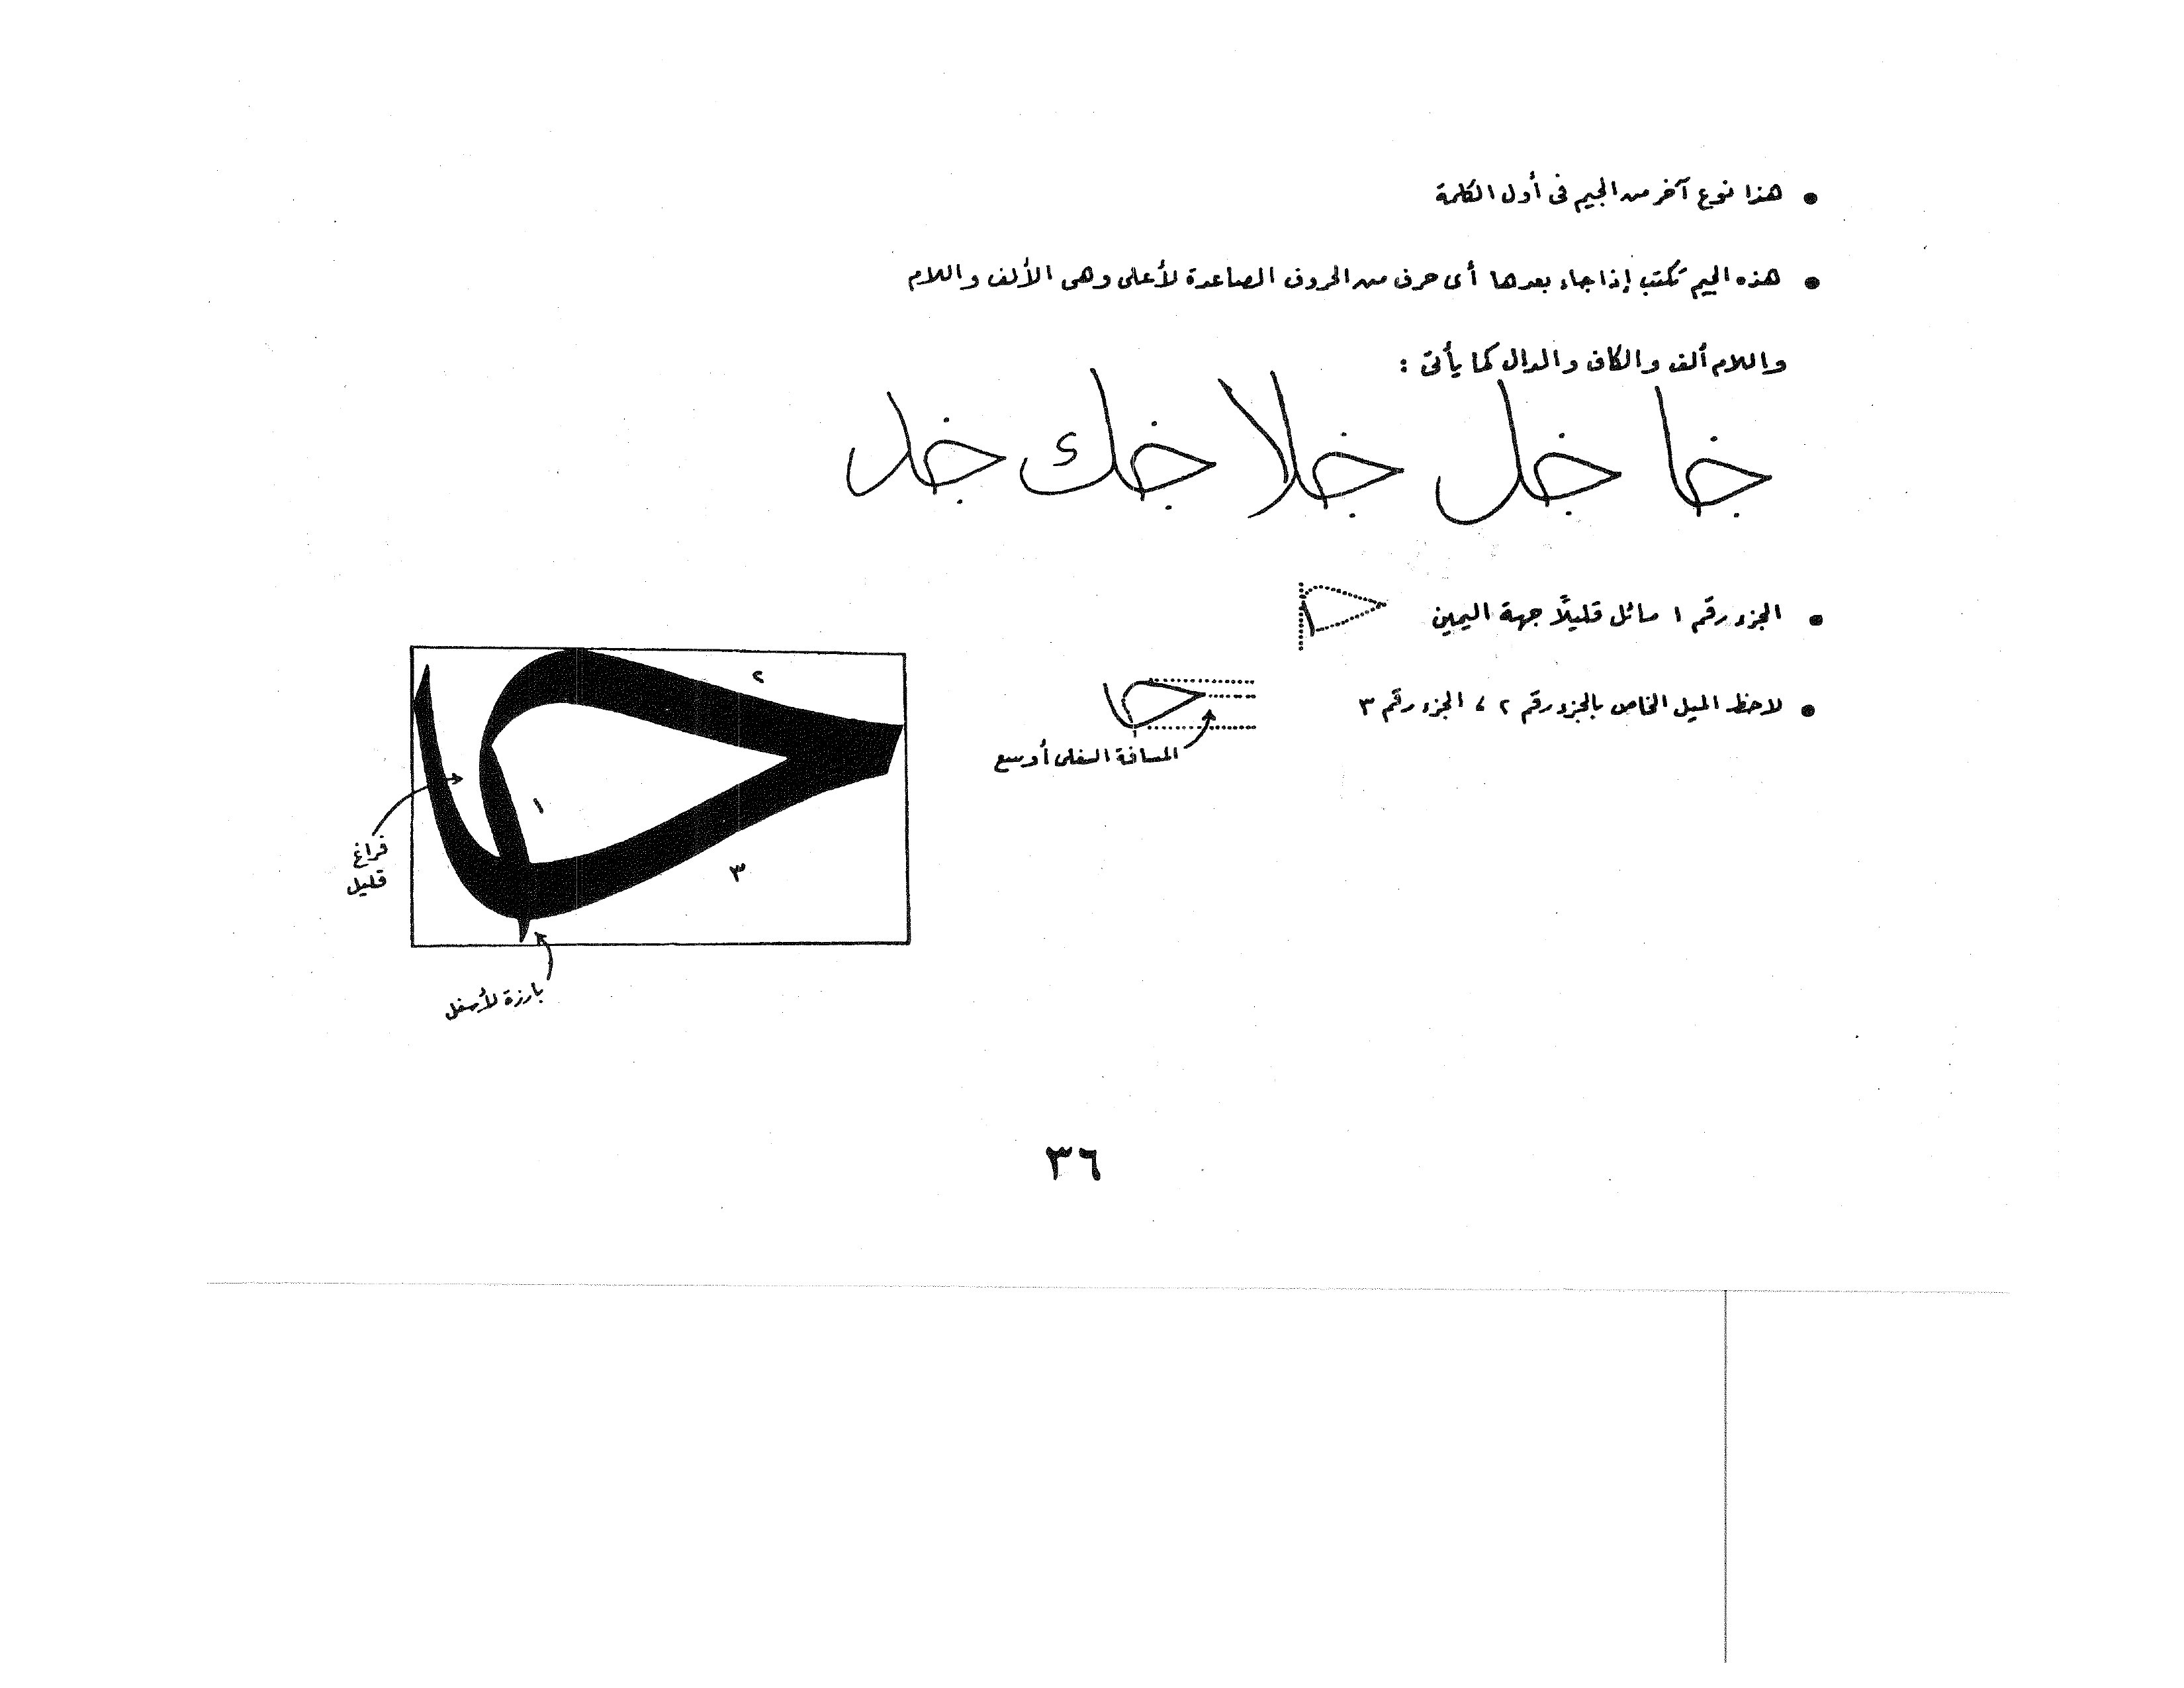 • هذا نوع آخر من الجيم فى أول الكلمة
• هذه الجيم تكتب إذا جاء بعدها أى حرف من الحروف الصاعدة لأعلى وهى الألف واللام
واللام ألف والكاف والدال كما يأتى :
خا خل خلا خك خد
• الجزء رقم ١ مائل قليلاً جهة اليمين
• لاحظ الميل الخاص بالجزء رقم ٢ ، الجزء رقم ٣
المسافة السفلى أوسع
٢
١
٣
فراغ
قليل
بارزة لأسفل
٣٦